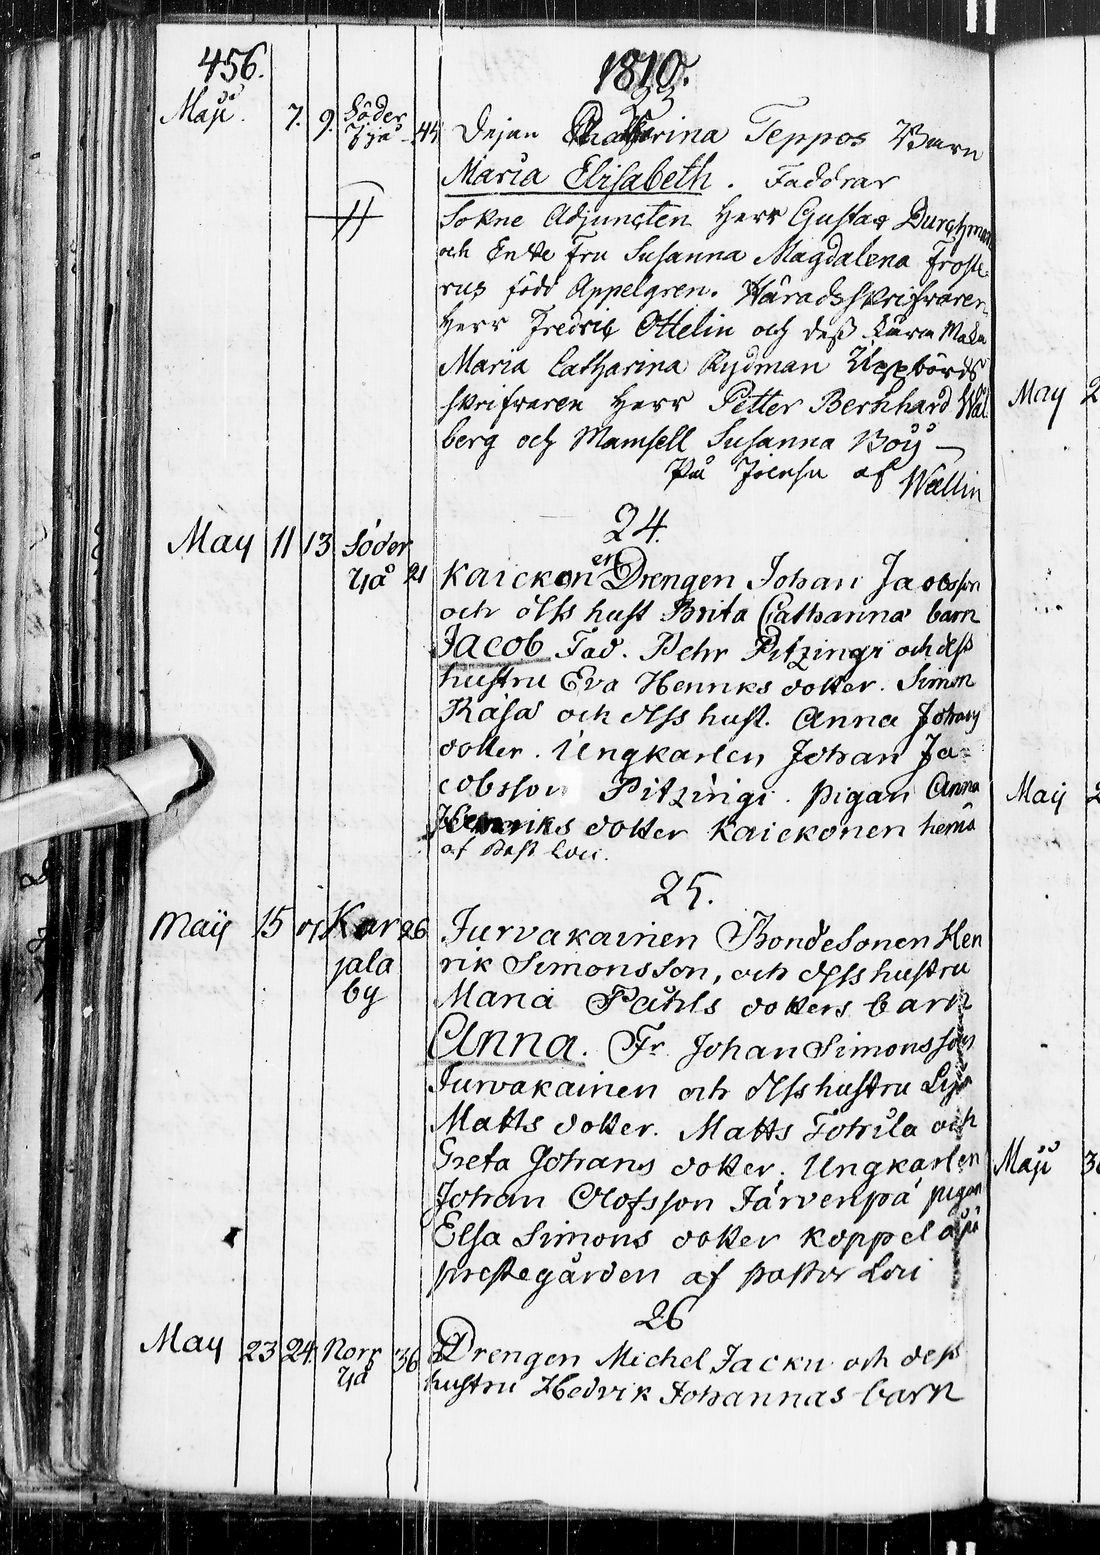 456. 1810.
23
Maji 7. 9. Söder 44 Pejan Catharina Teppos Barn
Yjä
Maria Elisabeth. Faddrar
Sokne Adjuncten Herr Gustav
och Enke Fru Susanna Magdalena Froste-
rus född Appelgren. Häradsskrifvaren
Herr Fredric Ottelin och dess kära Maka
Maria Catharina Rydman Uppbörds
skrifvaren Herr Petter Bernhard Wal
berg och Mamsell Susanna Boÿ —
På Joensu af Wallin
24.
May 11 13 Söder
Yjä 21 Kaickonen Drengen Johan Jacobsson
och dess hust Brita Catharina barn
Jacob Fad. Pehr Pitzingi och dess
hustru Eva Henriks dotter. Simon
Räsä och dess hust. Anna Johans
dotter. Ungkarlen Johan Ja-
cobsson Pitzingi. pigan Anna
Henriks dotter Kaickonen hema
af Past Lovi.
25.
Maÿ 15 Kar 26 Jurvakainen BondeSonen Hen
jala rik Simonsson, och dess hustru
by Maria Påhls dotters barn
Anna. Fr. Johan Simonsson
Jurvakainen och dess hustru Lisa
Matts dotter. Matts Töhila och
Greta Johans dotter. Ungkarlen
Johan Olofsson Järvenpä pigan
Elsa Simons dotter Koppel på
prestegården af Pastor Lovi
26
May 23 24. Norr 36 Drengen Michel Jacku och dess
Yjä hustru Hedvik Johannas barn
May 2
Maÿ 2
Maji 30